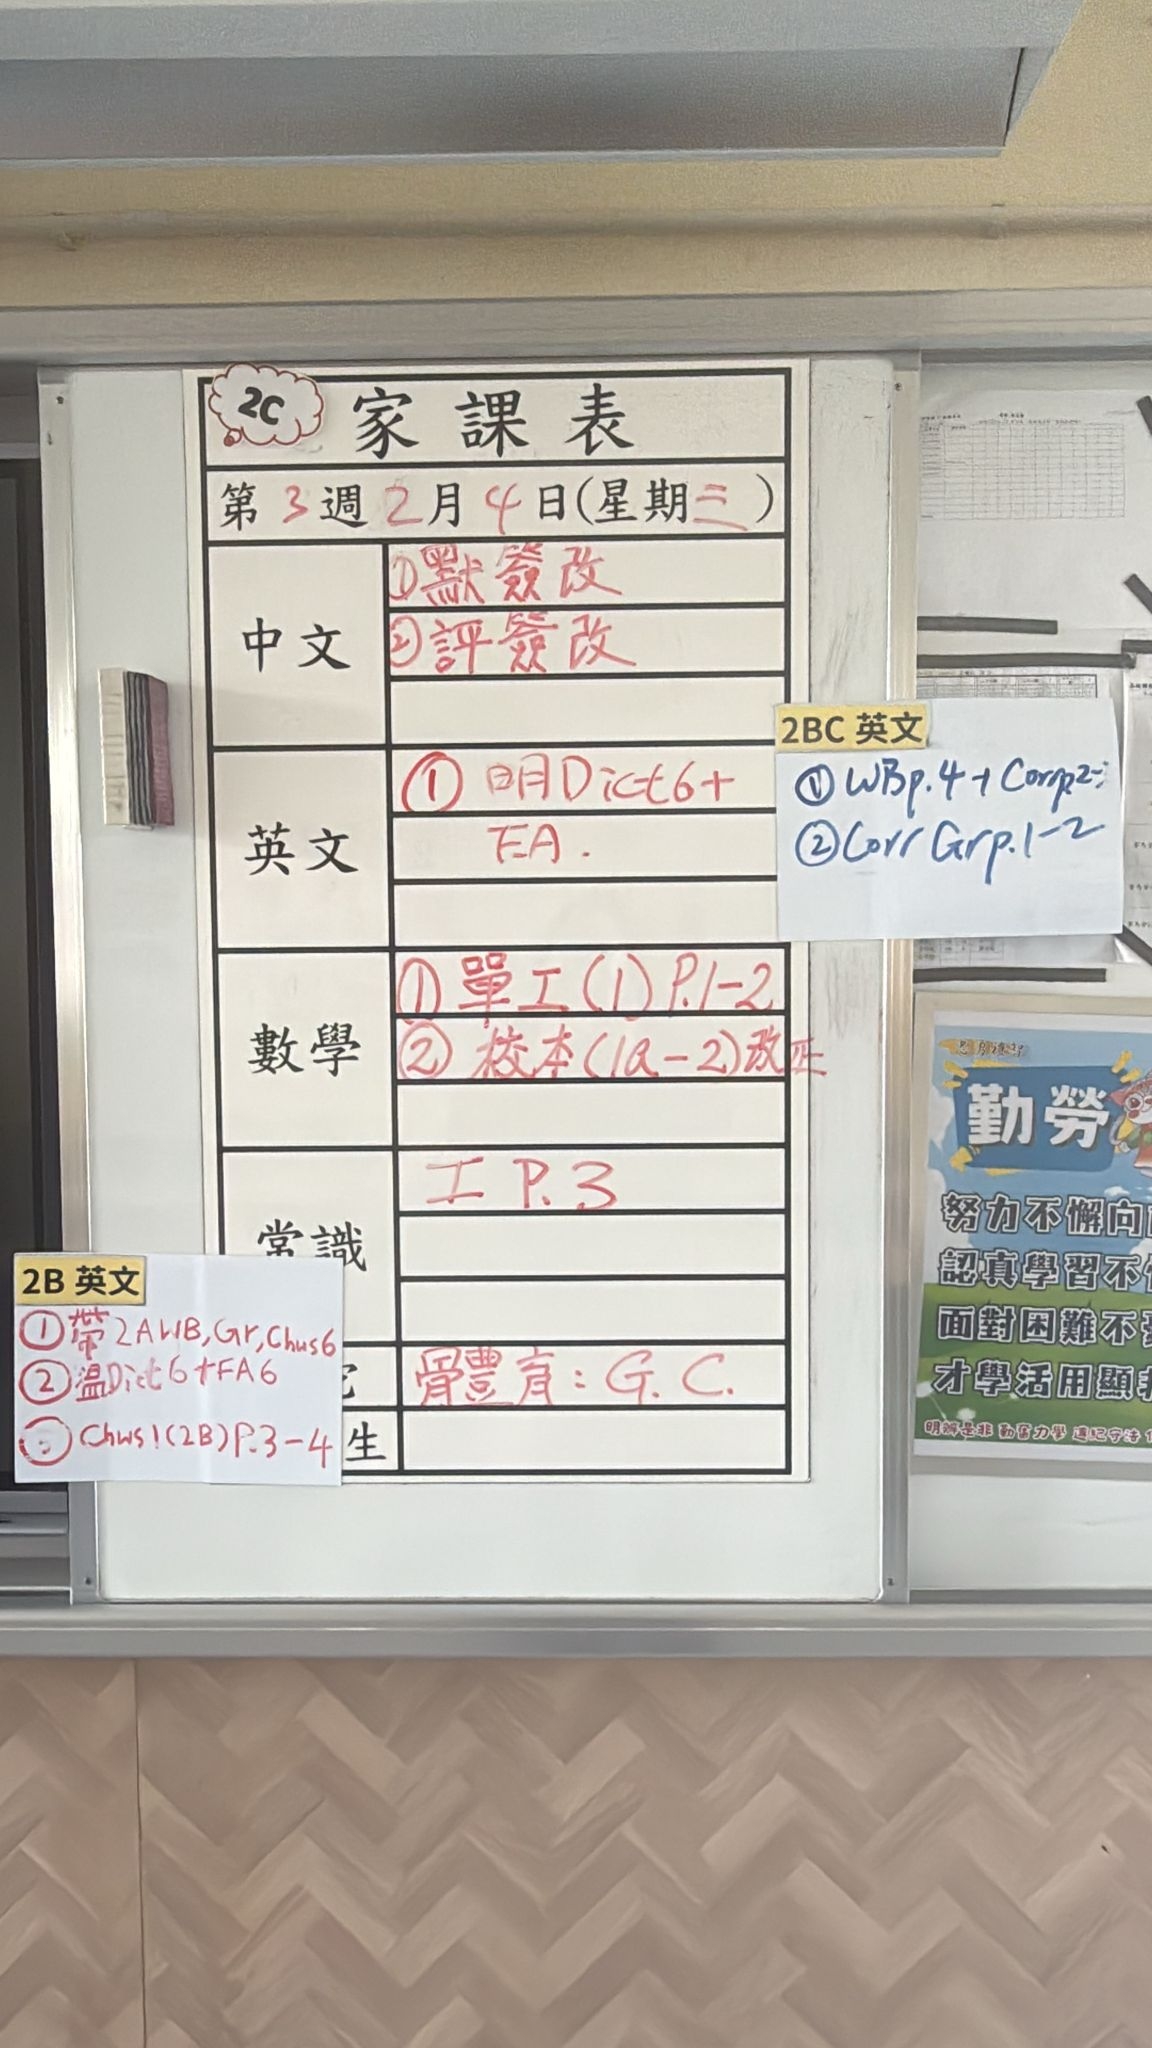 2C
家課表
第3週2月4日(星期三)
中文
①默簽改
②評簽改
英文
① 明Dict6+
FA.
數學
①單工(1)P.1-2
②校本(1a-2)改正
常識
工 P.3
體育:G.C.
生
2BC 英文
① WBp.4 + Corrp2-
② Corr Grp.1-2
2B 英文
①帶2AWB,Gr,Chws6
②溫Dict6+FA6
Chws1(2B)P.3-4
勤勞
努力不懈向
認真學習不
面對困難不
才學活用顯
明辨是非 勤奮力學 遵紀守法